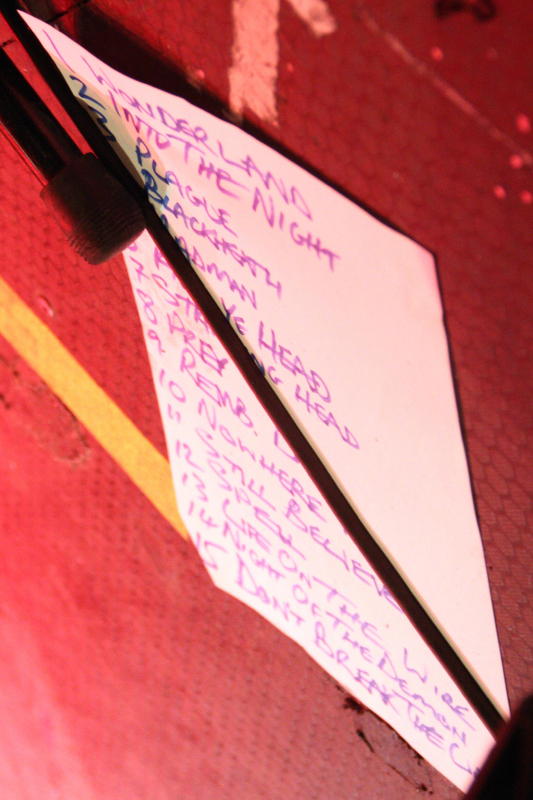 1 WONDERLAND
2 INTO THE NIGHT
3 PLAGUE
BLACKHEATH
ADMAN
YE HEAD
7 NG HEAD
8 PREY
9 REINB.
10 NOWHERE
11 STILL BELIEVE
12 SPELL
13 LIFE ON THE WIRE
14 NIGHT OF THE DEMON
15 DONT BREAK THE